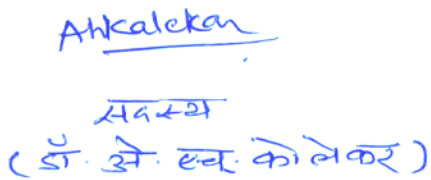 AHKalekar
सदस्य
(डॉ. ओ. एच. कोलेकर)